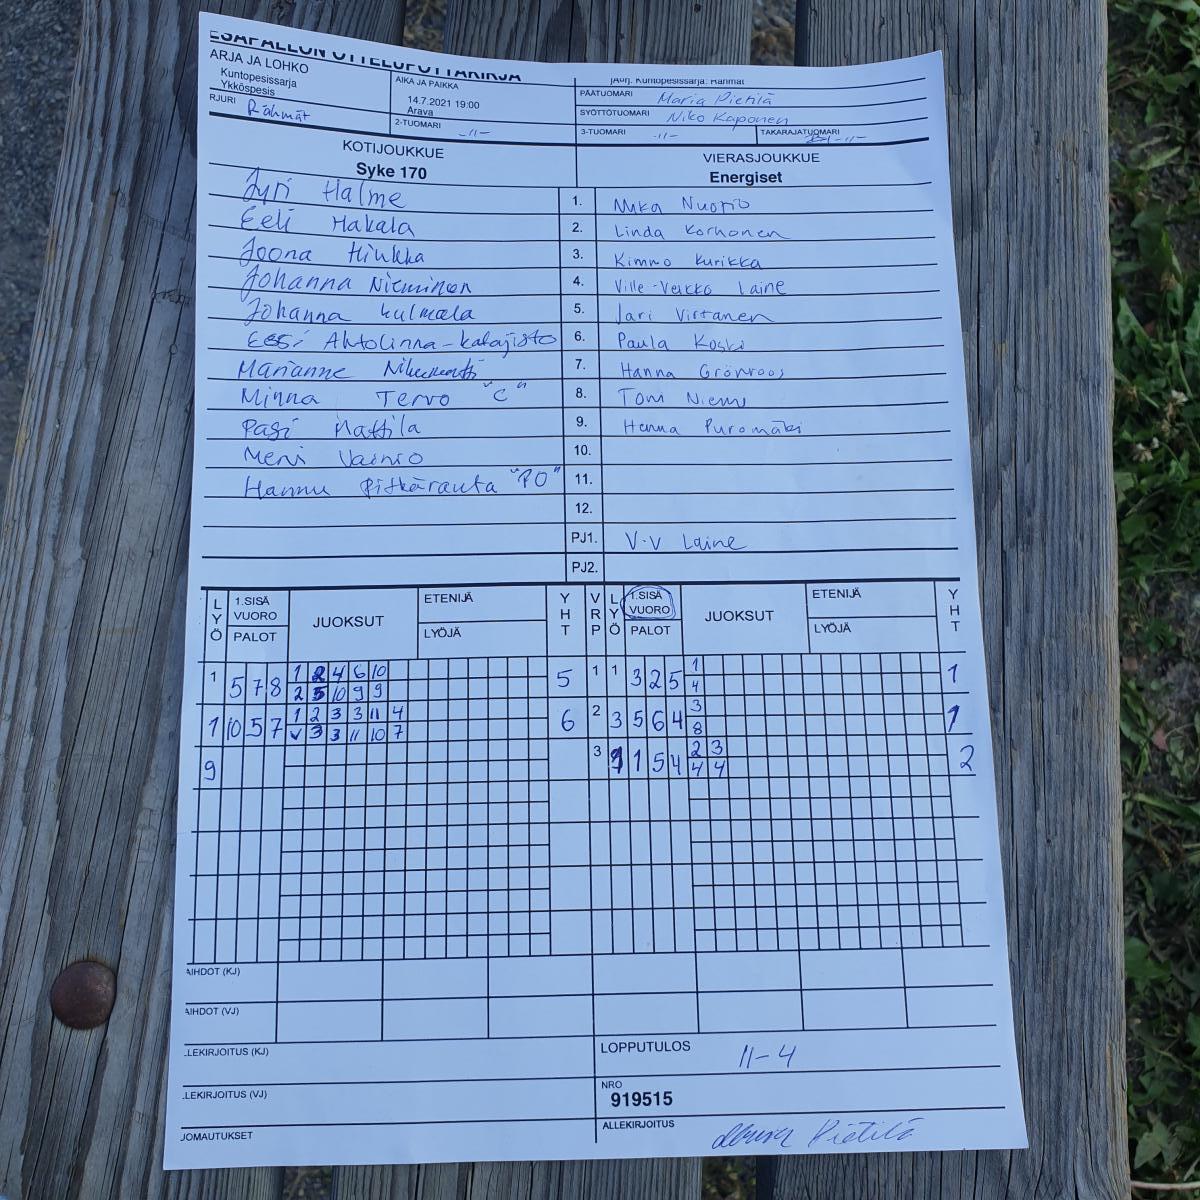 PESÄPALLON OTTELUPÖYTÄKIRJA
ARJA JA LOHKO
Kuntopesissarja
Ykköspesis
AIKA JA PAIKKA
14.7.2021 19:00
Arava
Kuntopesissarja: Rähmät
PÄÄTUOMARI Maria Pietilä
SYÖTTÖTUOMARI Niko Kaponen
RJURI Rähmät
2-TUOMARI -11-
3-TUOMARI -11-
TAKARAJATUOMARI -11-
KOTIJOUKKUE
Syke 170
VIERASJOUKKUE
Energiset
Jyri Halme 1. Mika Nuorio
Eeli Hakala 2. Linda Korhonen
Joona Hiukka 3. Kimmo Kurikka
Johanna Nieminen 4. Ville-Veikko Laine
Johanna Kulmala 5. Jari Virtanen
Essi Ahtolinna-Katajisto 6. Paula Koski
Marianne 7. Hanna Grönroos
Minna Tervo "C" 8. Toni Niemi
Pasi Mattila 9. Henna Puromäki
Mervi Vainio 10.
Hannu Pitkärauta "PO" 11.
12.
PJ1. V-V Laine
PJ2.
LYÖ 1.SISÄ VUORO PALOT JUOKSUT ETENIJÄ LYÖJÄ YHT VRP LYÖ 1.SISÄ VUORO PALOT JUOKSUT ETENIJÄ LYÖJÄ YHT
1 5 7 8 1 2 4 6 10 5 1 1 3 2 5 1 1
2 5 10 9 9 4
1 10 5 7 1 2 3 3 11 4 6 2 3 5 6 4 3 1
v 3 3 11 10 7 8
9 3 9 1 5 4 2 3 2
4 4
AIHDOT (KJ)
AIHDOT (VJ)
LEKIRJOITUS (KJ)
LOPPUTULOS 11-4
LEKIRJOITUS (VJ)
NRO
919515
JOMAUTUKSET
ALLEKIRJOITUS Maria Pietilä